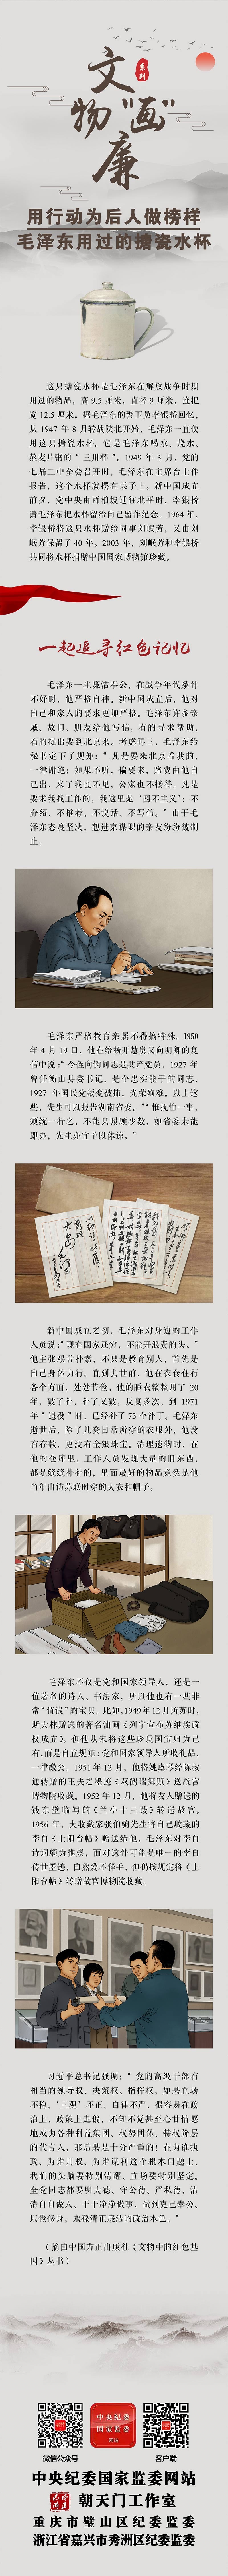 文物"画"廉
系列
用行动为后人做榜样
毛泽东用过的搪瓷水杯
这只搪瓷水杯是毛泽东在解放战争时期
用过的物品，高 9.5 厘米，直径 9 厘米，连把
宽 12.5 厘米。据毛泽东的警卫员李银桥回忆，
从 1947 年 8 月转战陕北开始，毛泽东一直使
用这只搪瓷水杯。它是毛泽东喝水、烧水、
熬麦片粥的“三用杯”。1949 年 3 月，党的
七届二中全会召开时，毛泽东在主席台上作
报告，这个水杯就摆在桌子上。新中国成立
前夕，党中央由西柏坡迁往北平时，李银桥
请毛泽东把水杯留给自己留作纪念。1964 年，
李银桥将这只水杯赠给同事刘岷芳，又由刘
岷芳保留了 40 年。2003 年，刘岷芳和李银桥
共同将水杯捐赠中国国家博物馆珍藏。
一起追寻红色记忆
毛泽东一生廉洁奉公，在战争年代条件
不好时，他严格自律。新中国成立后，他对
自己和家人的要求更加严格。毛泽东许多亲
戚、故旧、朋友给他写信，有的寻求帮助，
有的提出要到北京来。考虑再三，毛泽东给
秘书定下了规矩：“凡是要来北京看我的，
一律谢绝；如果不听，偏要来，路费由他自
己出，来了我也不见，公家也不接待。凡是
要求我找工作的，我这里是‘四不主义’：不
介绍、不推荐、不说话、不写信。”由于毛
泽东态度坚决，想进京谋职的亲友纷纷被制
止。
毛泽东严格教育亲属不得搞特殊。1950
年 4 月 19 日，他在给杨开慧舅父向明卿的复
信中说：“令侄向钧同志是共产党员，1927 年
曾任衡山县委书记，是个忠实能干的同志，
1927 年国民党叛变被捕，光荣殉难。以上这
些，先生可以报告湖南省委。”“惟抚恤一事，
须统一行之，不能只照顾少数，如省委未能
即办，先生亦宜予以体谅。”
新中国成立之初，毛泽东对身边的工作
人员说：“现在国家还穷，不能开浪费的头。”
他主张艰苦朴素，不只是教育别人，首先是
自己身体力行。直到去世前，他在衣食住行
各个方面，处处节俭。他的睡衣整整用了 20
年，破了补，补了又破，反复多次，到 1971
年“退役”时，已经补了 73 个补丁。毛泽东
逝世后，除了几套日常所穿的衣服外，他没
有存款，更没有金银珠宝。清理遗物时，在
他的仓库里，工作人员发现大量的旧东西，
都是缝缝补补的，里面最好的物品竟然是他
当年出访苏联时穿的大衣和帽子。
毛泽东不仅是党和国家领导人，还是一
位著名的诗人、书法家，所以他也有一些非
常“值钱”的宝贝。比如，1949年12月访苏时，
斯大林赠送的著名油画《列宁宣布苏维埃政
权成立》。但他从未将这些珍玩国宝归为己
有，而是自立规矩：党和国家领导人所收礼品，
一律缴公。1951 年 12 月，他将姚虞琴经陈叔
通转赠的王夫之墨迹《双鹤瑞舞赋》送故宫
博物院收藏。1952 年 12 月，他将友人赠送的
钱东壁临写的《兰亭十三跋》转送故宫。
1956 年，大收藏家张伯驹先生将自己收藏的
李白《上阳台帖》赠送给他，毛泽东对李白
诗词颇为推崇，面对这件可能是唯一的李白
传世墨迹，自然爱不释手，但仍按规定将《上
阳台帖》转赠故宫博物院收藏。
习近平总书记强调：“党的高级干部有
相当的领导权、决策权、指挥权，如果立场
不稳、‘三观’不正、自律不严，很容易在政
治上、政策上走偏，不知不觉甚至心甘情愿
地成为各种利益集团、权势团体、特权阶层
的代言人，那后果是十分严重的！在为谁执
政、为谁用权、为谁谋利这个根本问题上，
我们的头脑要特别清醒、立场要特别坚定。
全党同志都要明大德、守公德、严私德，清
清白白做人、干干净净做事，做到克己奉公、
以俭修身，永葆清正廉洁的政治本色。”
（摘自中国方正出版社《文物中的红色基
因》丛书）
中央纪委
国家监委
网站
微信公众号
客户端
中央纪委国家监委网站
朝天门工作室
重庆市璧山区纪委监委
浙江省嘉兴市秀洲区纪委监委